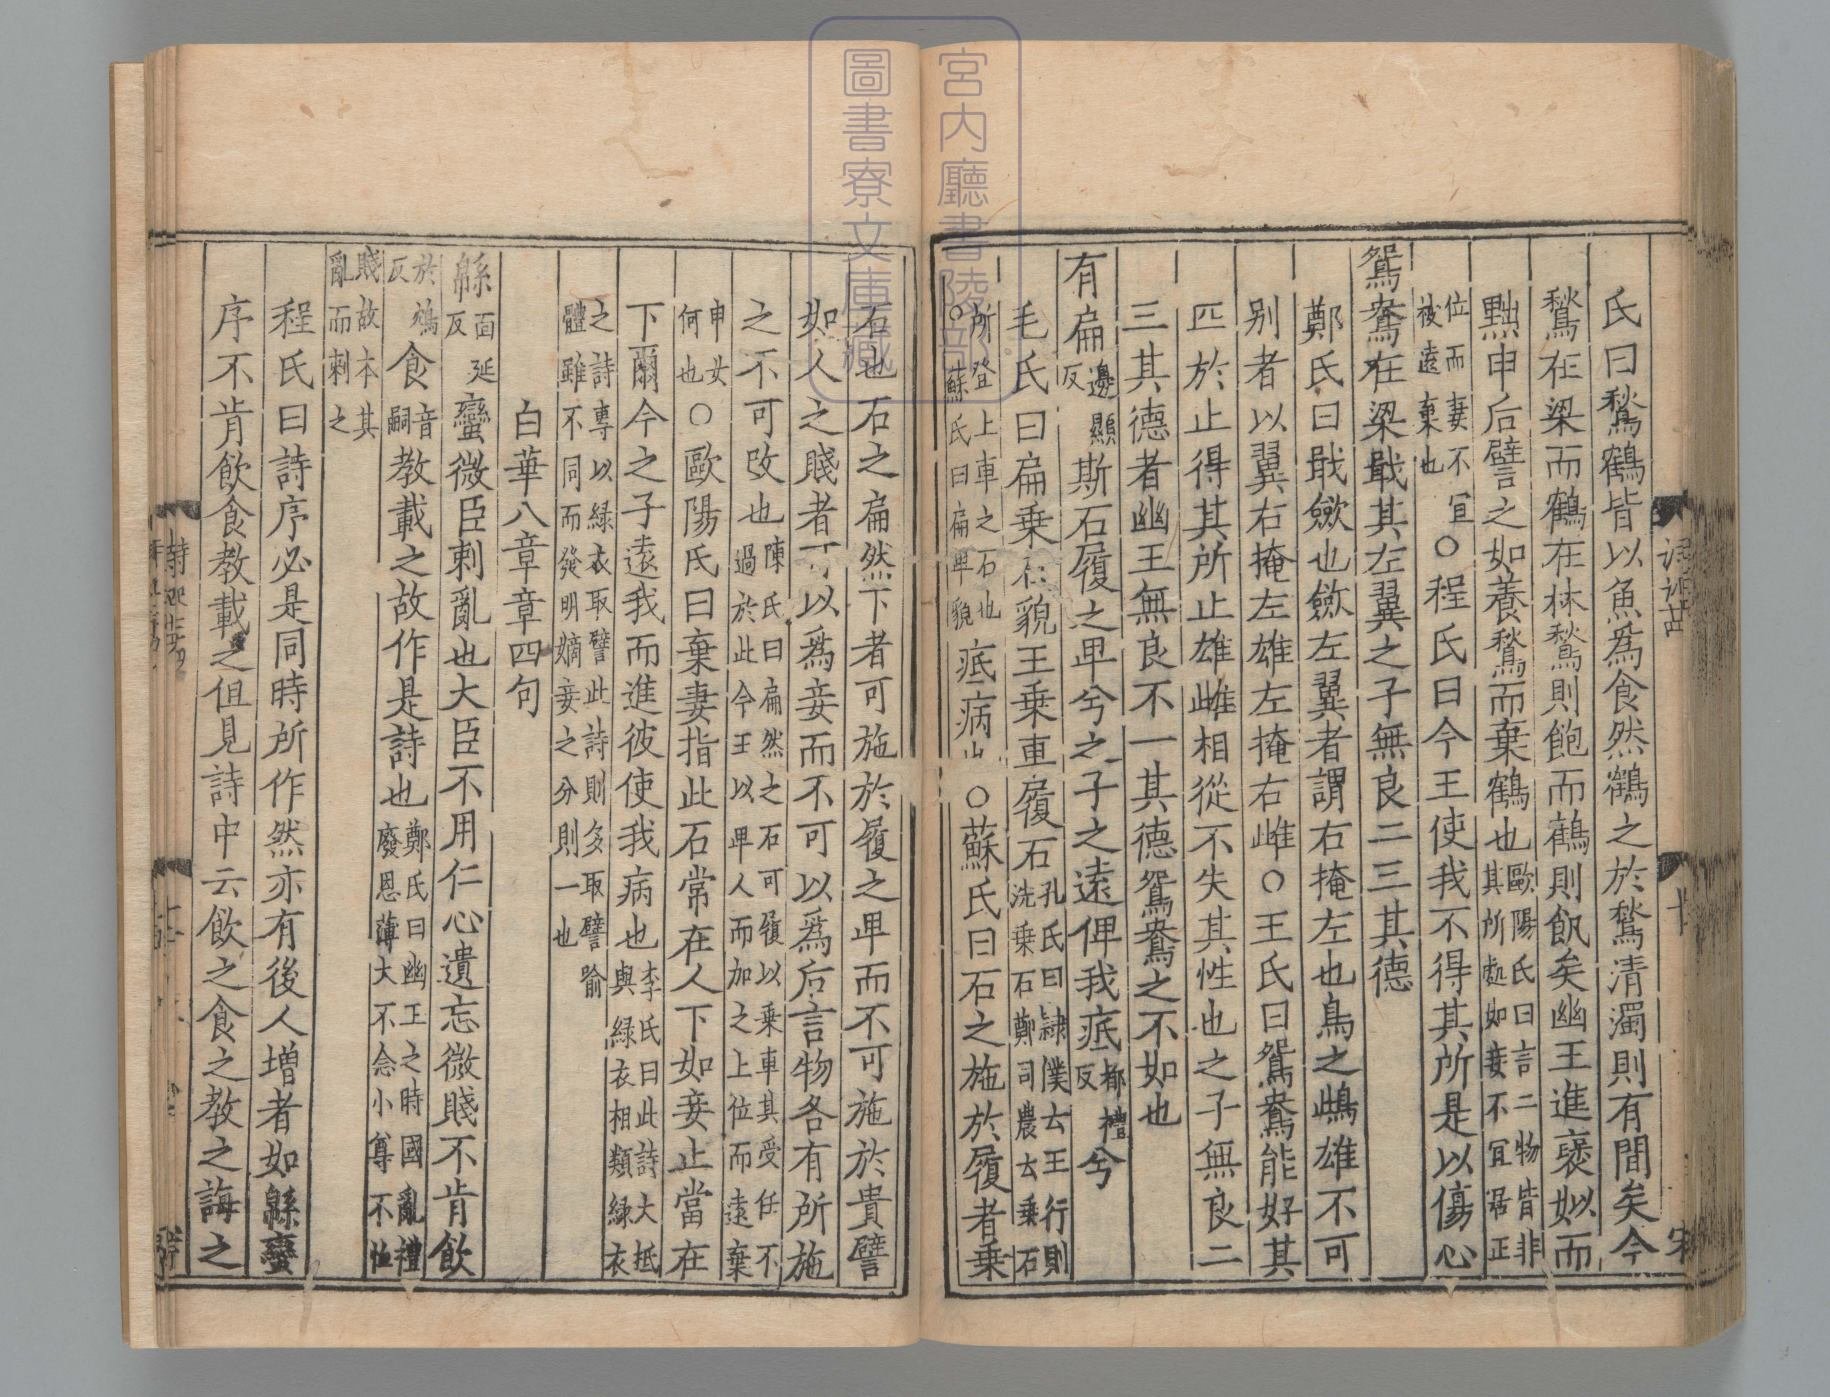 氏曰鶖鶴皆以魚為食然鶴之於鶖清濁則有間矣今
鶖在梁而鶴在林鶖則飽而鶴則飢矣幽王進褒姒而
黜申后譬之如養鶖而棄鶴也歐陽氏曰言二物皆非其所處如妾不宜居正
位而妻不宜被遠棄也○程氏曰今王使我不得其所是以傷心
鴛鴦在梁戢其左翼之子無良二三其德
鄭氏曰戢斂也斂左翼者謂右掩左也鳥之雌雄不可
别者以翼右掩左雄左掩右雌○王氏曰鴛鴦能好其
匹於止得其所止雄雌相從不失其性也之子無良二
三其德者幽王無良不一其德鴛鴦之不如也
有扁邊顯反斯石履之卑兮之子之遠俾我疧都禮反兮
毛氏曰扁乗石貌王乗車履石孔氏曰隷僕云王行則洗乗石鄭司農云乗石
所登上車之石也○蘇氏曰扁卑貌疧病也○蘇氏曰石之施於履者乗
石也石之扁然下者可施於履之卑而不可施於貴譬
如人之賤者可以為妾而不可以為后言物各有所施
之不可改也陳氏曰扁然之石可履以乗車其受任不過於此今王以卑人而加之上位而遠棄
申女何也○歐陽氏曰棄妻指此石常在人下如妾止當在
下爾今之子遠我而進彼使我病也李氏曰此詩大抵與緑衣相類緑衣
之詩專以緑衣取譬此詩則多取譬喻體雖不同而發明嫡妾之分則一也
白華八章章四句
緜面延反蠻微臣刺亂也大臣不用仁心遺忘微賤不肯飲
於鴆反食音嗣教載之故作是詩也鄭氏曰幽王之時國亂禮廢恩薄大不念小尊不恤
賤故本其亂而刺之
程氏曰詩序必是同時所作然亦有後人增者如緜蠻
序不肯飲食教載之但見詩中云飲之食之教之誨之
宮内廳書陵部
圖書寮文庫藏